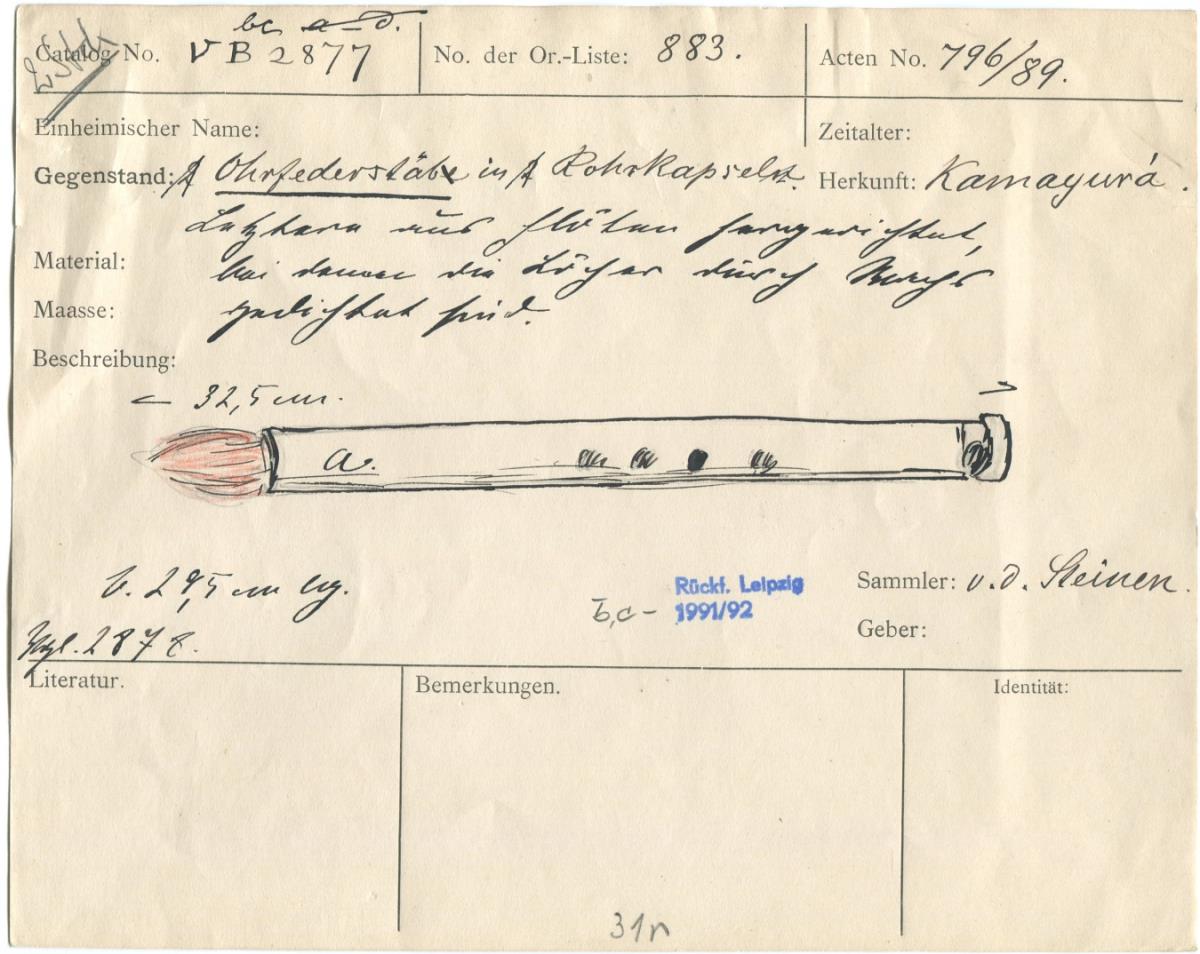 bc a–d.
Catalog No. VB 2877
No. der Or.-Liste: 883.
Acten No. 796/89.
Einheimischer Name:
Zeitalter:
Gegenstand: Ohrfederstäbe in Rohrkapseln.
Herkunft: Kamayurá.
Letztere aus Flöten hergerichtet,
bei denen die Löcher durch Wachs
gedichtet sind.
Material:
Maasse:
Beschreibung:
← 32,5 cm. →
a.
b. 29,5 cm lg.
Rückf. Leipzig
b,c – 1991/92
Sammler: v. d. Steinen.
Geber:
Vgl. 2878.
Literatur.
Bemerkungen.
Identität:
31n